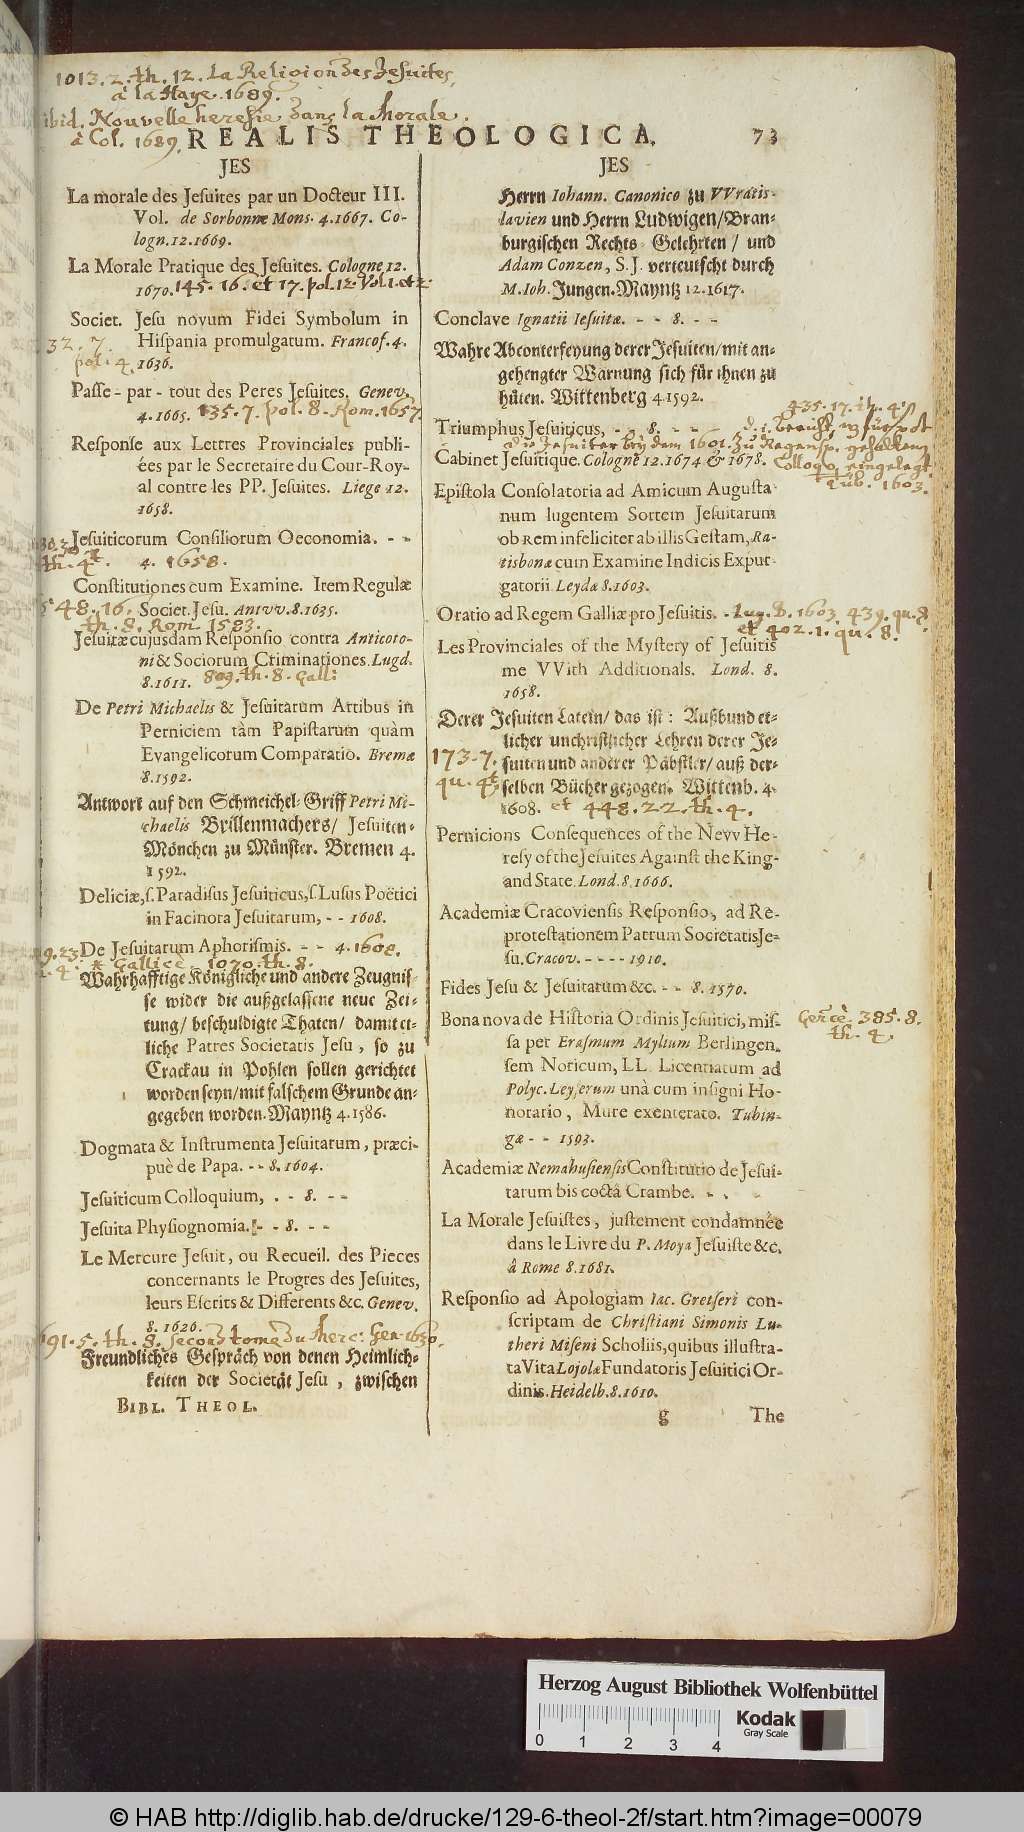 1013. 2. th. 12. La Religion des Jesuites,
à la Haye. 1689.
ibid. Nouvelle heresie dans la Morale.
à Col. 1689.
REALIS THEOLOGICA. 73
JES
La morale des Jesuites par un Docteur III.
Vol. de Sorbonne Mons. 4. 1667. Co-
logn. 12. 1669.
La Morale Pratique des Jesuites. Cologne 12.
1670. 145. 16. et 17. pol. 12. Vol. 1. et 2.
Societ. Jesu novum Fidei Symbolum in
32. 7. Hispania promulgatum. Francof. 4.
pol. 4. 1636.
Passe-par-tout des Peres Jesuites. Genev.
4. 1665. 135. 7. pol. 8. Rom. 1657
Response aux Lettres Provinciales publi-
ées par le Secretaire du Cour-Roy-
al contre les PP. Jesuites. Liege 12.
1658.
Jesuiticorum Consiliorum Oeconomia. - -
th. 4t. 4. 1658.
Constitutiones cum Examine. Item Regulæ
548. 16. Societ. Jesu. Antvv. 8. 1635.
th. 8. Rom 1583.
Jesuitæ cujusdam Responsio contra Anticoto-
ni & Sociorum Criminationes. Lugd.
8. 1611. 809. th. 8. Gall:
De Petri Michaelis & Jesuitarum Artibus in
Perniciem tàm Papistarum quàm
Evangelicorum Comparatio. Bremæ
8. 1592.
Antwort auf den Schmeichel-Griff Petri Mi-
chaelis Brillenmachers/ Jesuiten-
Mönchen zu Münster. Bremen 4.
1592.
Deliciæ, s. Paradisus Jesuiticus, s. Lusus Poëtici
in Facinora Jesuitarum, - - 1608.
De Jesuitarum Aphorismis. - - 4. 1608.
* Gallicè 1070. th. 8.
Wahrhafftige Königliche und andere Zeugnis-
se wider die außgelassene neue Zei-
tung/ beschuldigte Thaten/ damit et-
liche Patres Societatis Jesu, so zu
Crackau in Pohlen sollen gerichtet
worden seyn/ mit falschem Grunde an-
gegeben worden. Mayntz 4. 1586.
Dogmata & Instrumenta Jesuitarum, præci-
puè de Papa. - - 8. 1604.
Jesuiticum Colloquium, - - 8. - -
Jesuita Physiognomia. - - 8. - -
Le Mercure Jesuit, ou Recueil. des Pieces
concernants le Progres des Jesuites,
leurs Escrits & Differents &c. Genev.
8. 1626.
691. 5. th. 8. second tome du Merc: Gen. 1630.
Freundliches Gespräch von denen Heimlich-
keiten der Societät Jesu, zwischen
BIBL. THEOL.
JES
Herrn Iohann. Canonico zu VVratis-
lavien und Herrn Ludwigen/ Bran-
burgischen Rechts-Gelehrten/ und
Adam Conzen, S. J. verteutscht durch
M. Ioh. Jungen. Mayntz 12. 1617.
Conclave Ignatii Iesuitæ. - - 8. - -
Wahre Abconterfeyung derer Jesuiten/ mit an-
gehengter Warnung sich für ihnen zu
hüten. Wittenberg 4. 1592.
435. 17. th. 4.
Triumphus Jesuiticus, - - 8. - - d. i. bericht,
die Jesuiter bey dem 1601. zu Regensp. gehaltenen
Cabinet Jesuitique. Cologne 12. 1674 & 1678. Colloqv. eingelegt
Tüb. 1603.
Epistola Consolatoria ad Amicum Augusta-
num lugentem Sortem Jesuitarum
ob Rem infeliciter ab illis Gestam, Ra-
tisbonæ cum Examine Indicis Expur-
gatorii Leydæ 8. 1603.
Oratio ad Regem Galliæ pro Jesuitis. - Lug. B. 1603. 439. qu. 8.
et 402. 1. qu. 8.
Les Provinciales of the Mystery of Jesuitis
me VVith Additionals. Lond. 8.
1658.
Derer Jesuiten Latein/ das ist: Außbund et-
licher unchristlicher Lehren derer Je-
173. 7. suiten und anderer Päbstler/ auß der-
qu. 4t. selben Bücher gezogen. Wittenb. 4.
1608. et 448. 22. th. 4.
Pernicions Consequences of the Nevv He-
resy of the Jesuites Against the King-
and State. Lond. 8. 1666.
Academiæ Cracoviensis Responsio, ad Re-
protestationem Patrum Societatis Je-
su. Cracov. - - - - 1910.
Fides Jesu & Jesuitarum &c. - - 8. 1570.
Bona nova de Historia Ordinis Jesuitici, mis-
sa per Erasmum Mylium Berlingen-
sem Noricum, LL Licentiatum ad
Polyc. Leyserum unà cum insigni Ho-
norario, Mure exenterato. Tubin-
gæ - - 1593.
385. 8.
th. 4.
Academiæ Nemahusiensis Constitutio de Jesui-
tarum bis coctâ Crambe. - -
La Morale Jesuistes, justement condamnée
dans le Livre du P. Moya Jesuiste &c.
à Rome 8. 1681.
Responsio ad Apologiam Iac. Gretseri con-
scriptam de Christiani Simonis Lu-
theri Miseni Scholiis, quibus illustra-
ta Vita Lojolæ Fundatoris Jesuitici Or-
dinis. Heidelb. 8. 1610.
g The
Herzog August Bibliothek Wolfenbüttel
0 1 2 3 4
Kodak
Gray Scale
© HAB http://diglib.hab.de/drucke/129-6-theol-2f/start.htm?image=00079